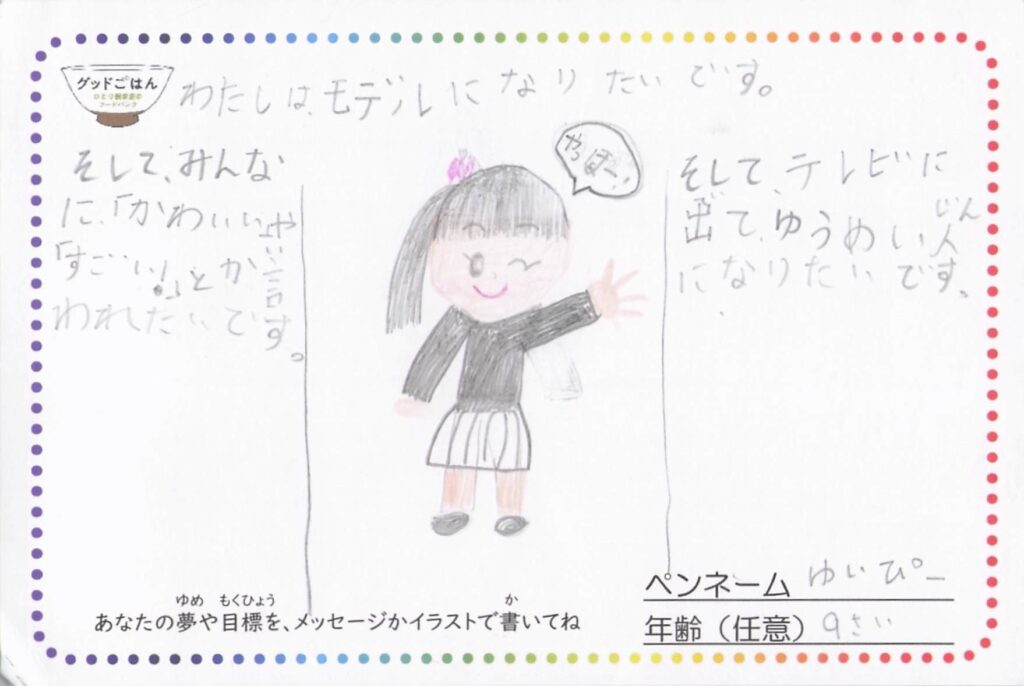 グッドごはん
ひとり親家庭の
フードバンク
わたしは、モデルになりたいです。
そして、みんな
に、「かわいい」や
「すごーい!」とか言
われたいです。
やっほー!
そして、テレビに
出て、ゆうめい人
じん
になりたいです。
ゆめ もくひょう か
あなたの夢や目標を、メッセージかイラストで書いてね
ペンネーム ゆいぴー
年齢(任意) 9さい